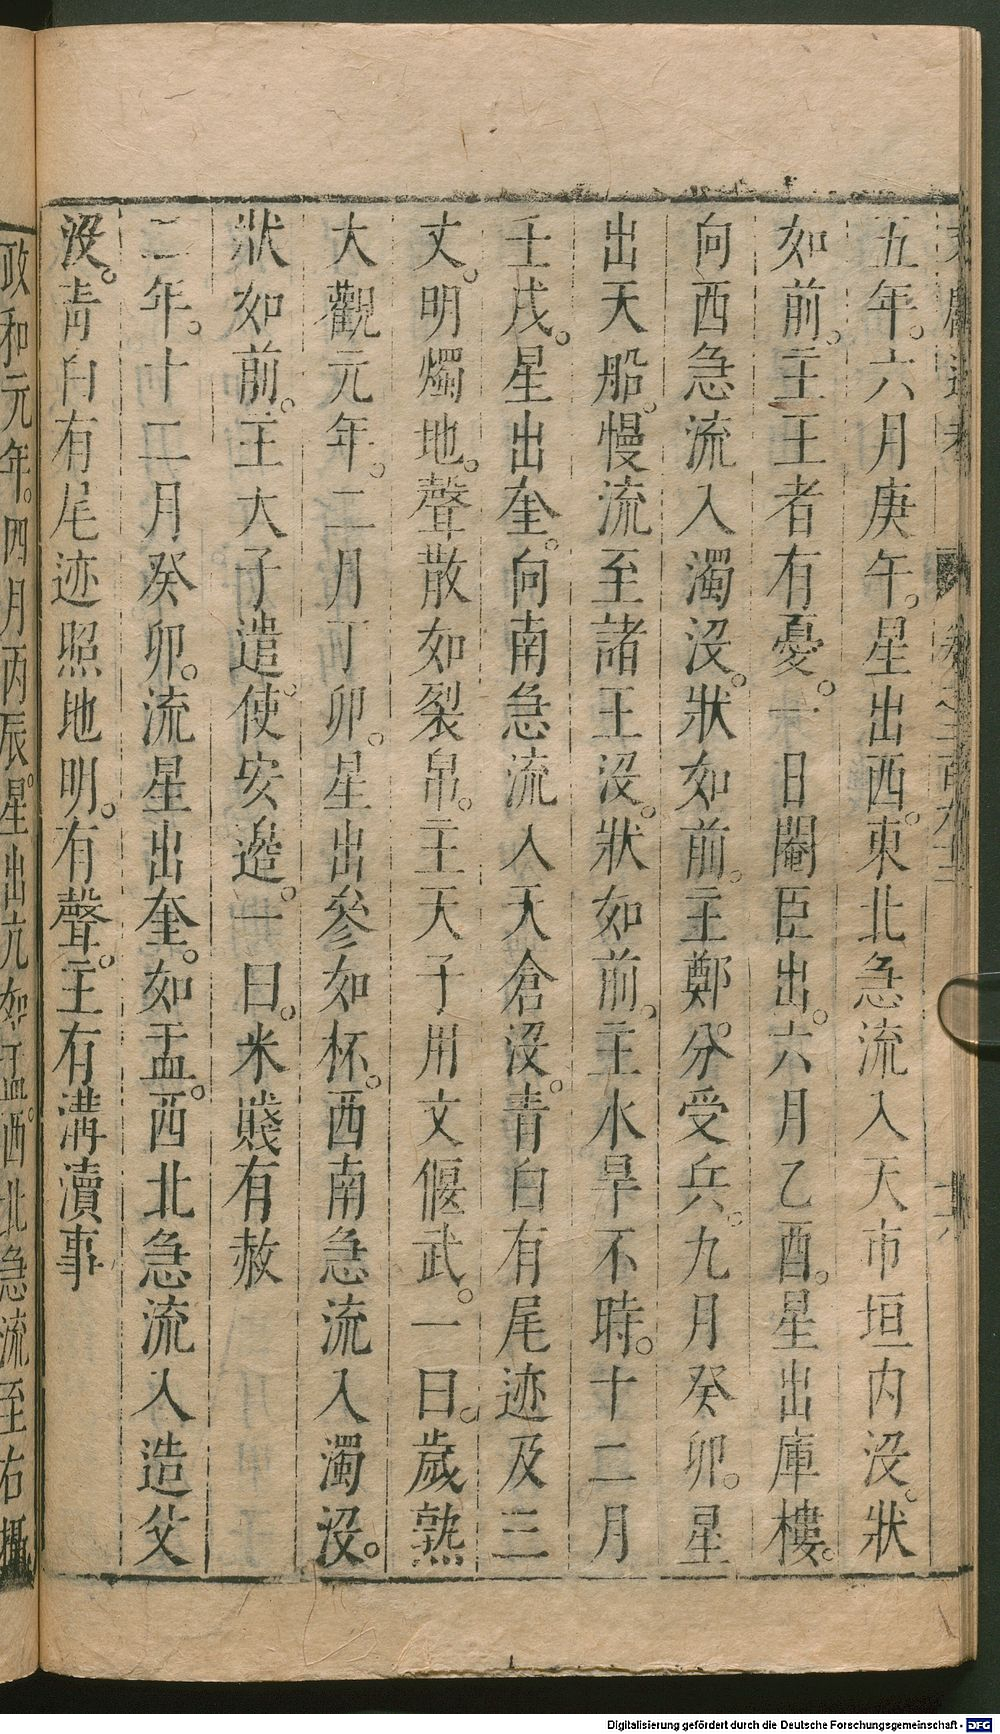 五年。六月庚午。星出西。東北急流入天市垣内没。狀
如前。主王者有憂。一曰閹臣出。六月乙酉。星出庫樓。
向西急流入濁没。狀如前。主鄭分受兵。九月癸卯。星
出天船。慢流至諸王没。狀如前。主水旱不時。十二月
壬戌。星出奎。向南急流入天倉没。青白有尾迹及三
丈。明燭地。聲散如裂帛。主天子用文偃武。一曰。歲熟
大觀元年。二月丁卯。星出參如杯。西南急流入濁没。
狀如前。主大子遣使安邊。一曰。米賤有赦
二年。十二月癸卯。流星出奎。如盂。西北急流入造父
没。青白有尾迹照地明。有聲。主有溝瀆事
政和元年。四月丙辰。星出亢如盂。西北急流至右攝
Digitalisierung gefördert durch die Deutsche Forschungsgemeinschaft - DFG